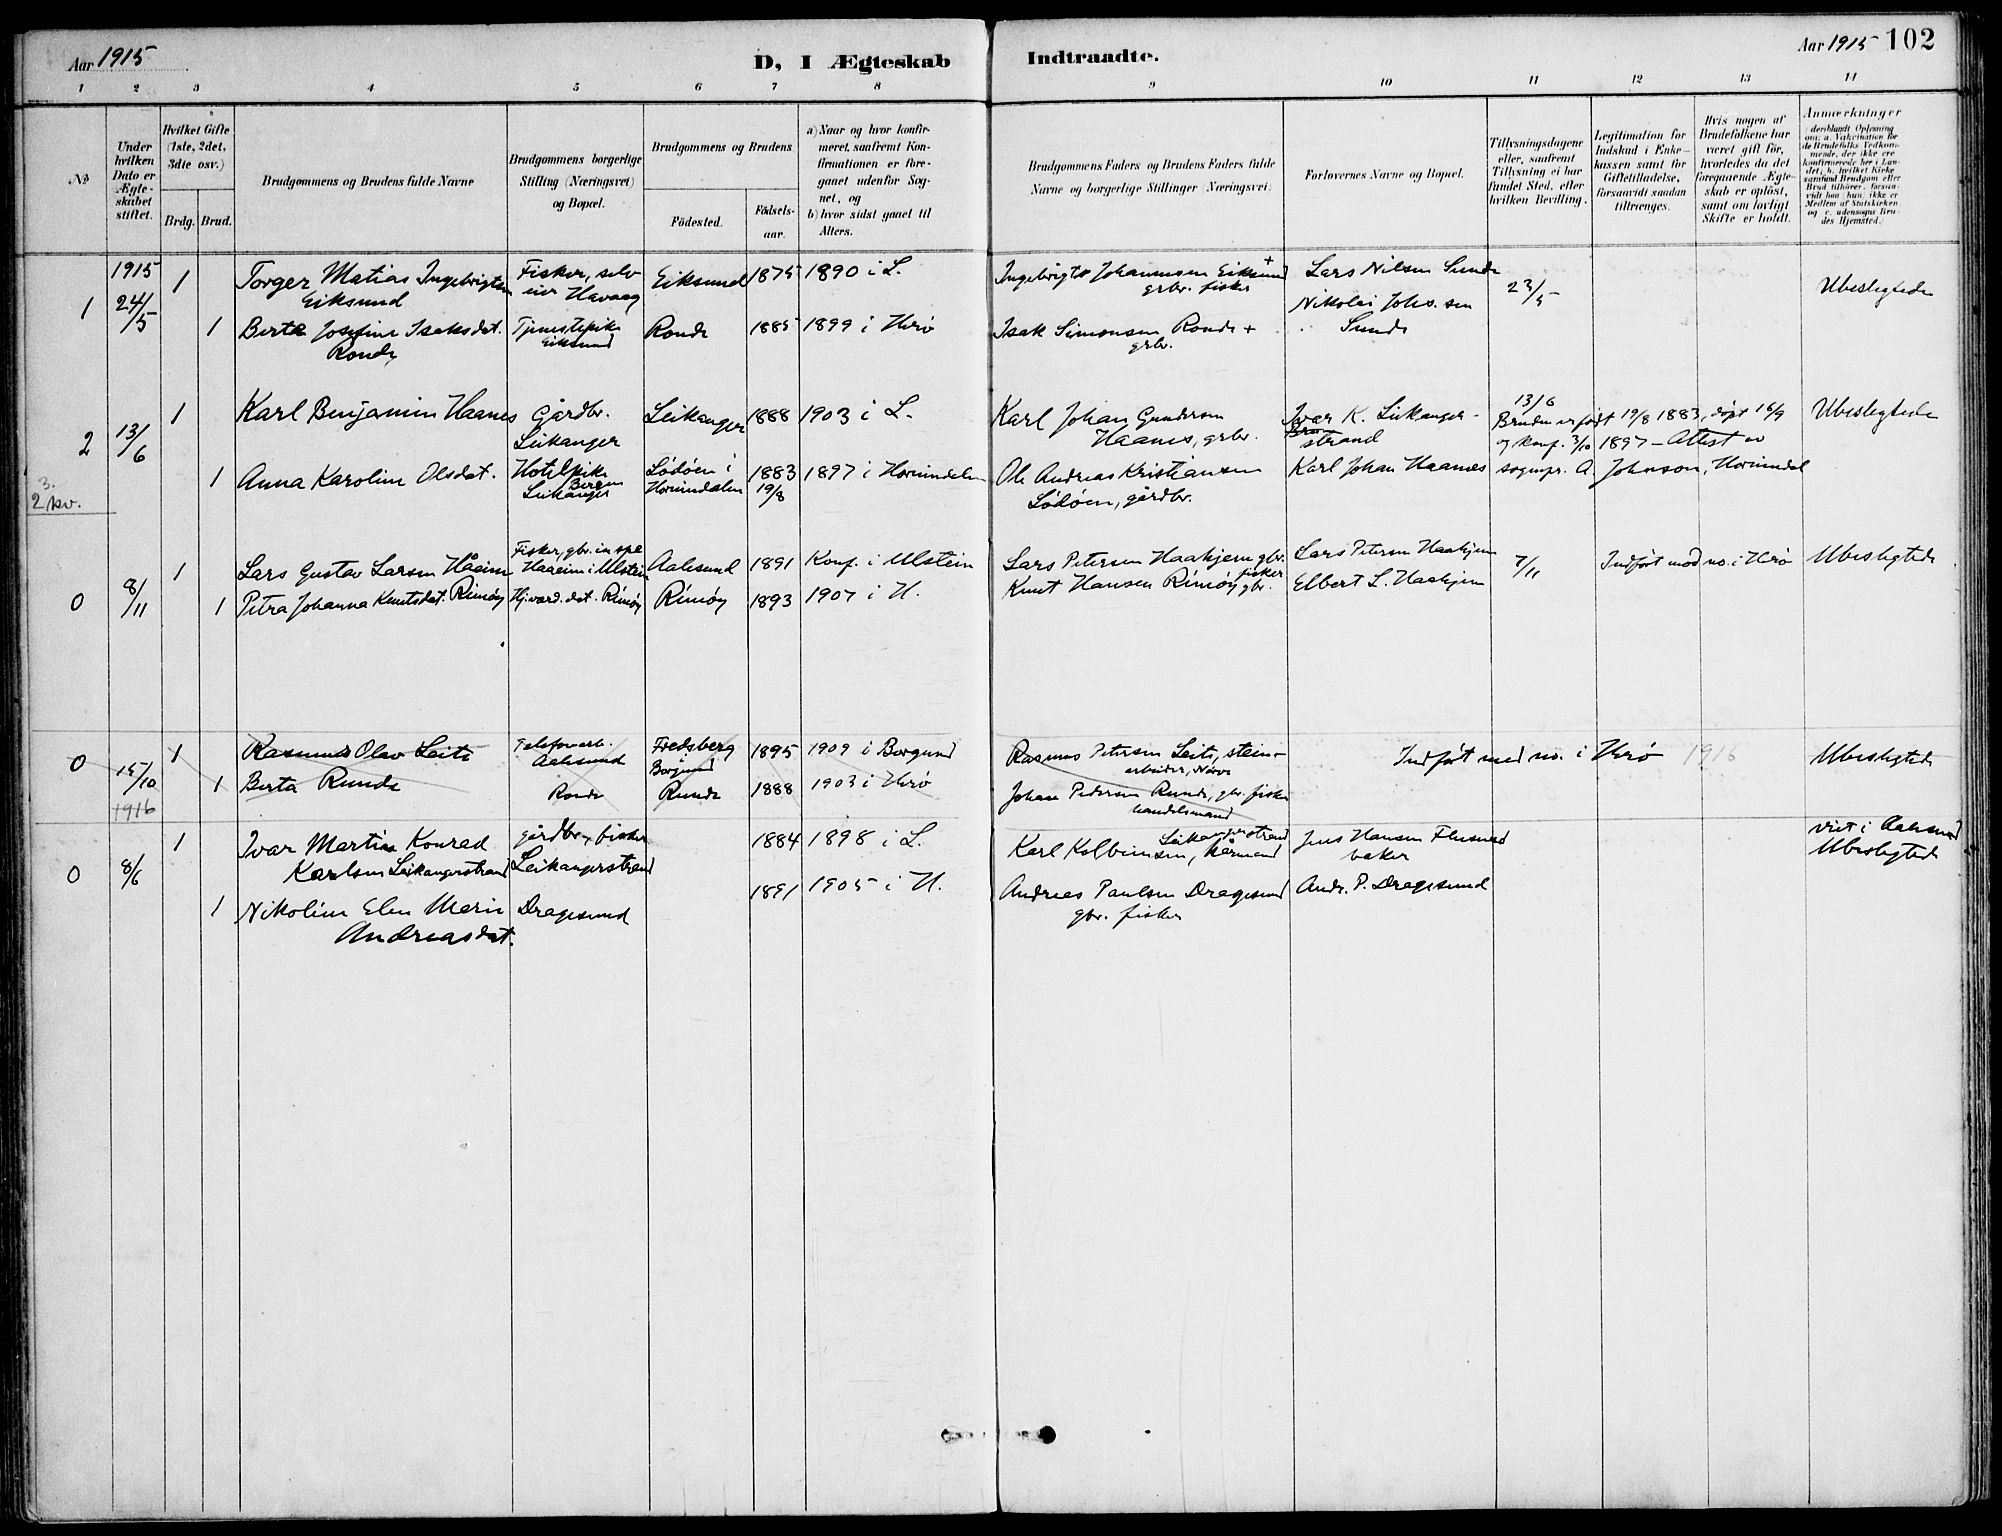 Aar 1915
D, I Ægteskab
Indtraadte.
Aar 1915 102
1 2 3 4 5 6 7 8 9 10 11 12 13 14
No
Under hvilken Dato er Ægteskabet stiftet.
Hvilket Gifte (1ste, 2det, 3die osv.)
Brdg. Brud.
Brudgommens og Brudens fulde Navne
Brudgommens borgerlige Stilling (Næringsvei) og Bopæl.
Brudgommens og Brudens
Födested.
Födselsaar.
a) Naar og hvor konfirmeret, saafremt Konfirmationen er foregaaet udenfor Sognet, og
b) hvor sidst gaaet til Alters.
Brudgommens Faders og Brudens Faders fulde Navne og borgerlige Stillinger (Næringsvei).
Forlovernes Navne og Bopæl.
Tillysningsdagene eller, saafremt Tillysning ei har fundet Sted, efter hvilken Bevilling.
Legitimation for Indskud i Enkekassen samt for Giftetilladelse, forsaavidt saadan tiltrænges.
Hvis nogen af Brudefolkene har været gift för, hvorledes da det foregaaende Ægteskab er oplöst, samt om lovligt Skifte er holdt.
Anmærkninger
1 1915 24/5 1
Torger Matias Ingebrigtsen Eiksund
Fisker, selveier Havaag
Eiksund 1875 1890 i L.
Ingebrigt Johannesen Eiksund +
grbr. fisker
Lars Nilsen Sunde
Nikolai Johs.sen Sunde
23/5
Ubeslegtede
1 Berte Josefine Isaksdat. Ronde
Tjenestepike Eiksund
Ronde 1885 1899 i Herö
Isak Simonsen Ronde +
grbr.
2 13/6 1
Karl Benjamin Haanes
Gårdbr. Leikanger
Leikanger 1888 1903 i L.
Karl Johan Gundersen Haanes, grbr.
Ivar K. Leikangerstrand
13/6
Bruden er født 19/8 1883, døpt 16/9
og konf. 3/10 1897 - Attest av
sognepr. A. Johnson, Hornindal
Ubeslegtede
1 Anna Karoline Olsdat.
Hotelpike Bergen
Leikanger
Lødøen i Hornindalen
1883 19/8 1897 i Hornindalen
Ole Andreas Kristiansen
Lødøen, gårdbr.
Karl Johan Haanes
3.
2 kv.
0 8/11 1
Lars Gustav Larsen Håeim
Fisker, gbr. in spe
Haaeim i Ulstein
Aalesund 1891 Konf. i Ulstein
Lars Petersen Haahjem gbr. fisker
Lars Petersen Haahjem
7/11
Indført med no. i Herö
Ubeslegtede
1 Petra Johanna Knutsdat. Rimöy
Hj.vær. dat. Rimöy
Rimöy 1893 1907 i H.
Knut Hansen Rimöy gbr.
Elbert L. Haahjem
0 15/10 1916 1
Rasmus Olav Leite
Telefonarb. Aalesund
Fredsberg Borgund
1895 1909 i Borgund
Rasmus Petersen Leite, steinarbeider, Nörve
Indført med no. i Herö 1916
Ubeslegtede
1 Berta Runde
Ronde
Runde 1888 1903 i Herö
Johan Pedersen Runde, gbr. fisker
handelsmand
0 8/6 1
Ivar Martin Konrad
Karlsen Leikangerstrand
gårdbr., fisker
Leikangerstrand
1884 1898 i L.
Karl Kolbeinsen, Leikangerstrand, kårmand
Jens Hansen Flusund
baker
viet i Aalesund
Ubeslegtede
1 Nikoline Elen Marie
Andreasdat.
Dragesund
1891 1905 i H.
Andreas Paulsen Dragesund
gbr. fisker
Andr. P. Dragesund